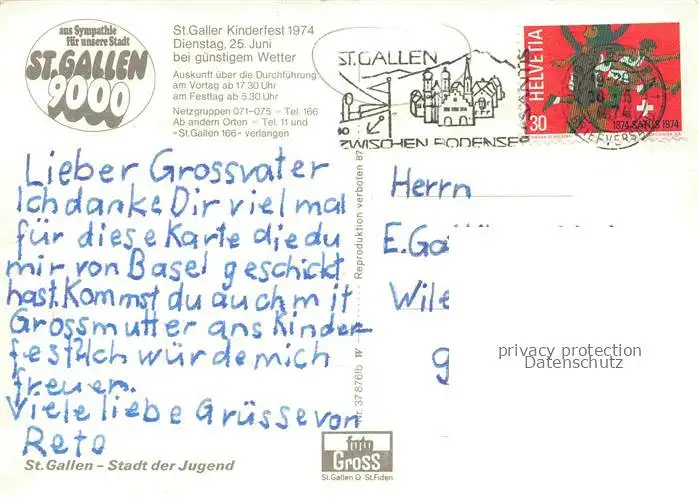 aus Sympathie
für unsere Stadt
ST.GALLEN
9000
St.Galler Kinderfest 1974
Dienstag, 25. Juni
bei günstigem Wetter
Auskunft über die Durchführung:
am Vortag ab 17.30 Uhr
am Festtag ab 5.30 Uhr
Netzgruppen 071–075 = Tel. 166
Ab andern Orten = Tel. 11 und
«St.Gallen 166» verlangen
ST.GALLEN
ZWISCHEN BODENSEE
HELVETIA
30
1874 SATUS 1974
BRIEFVERSAND
Lieber Grossvater
Ich danke Dir viel mal
für diese Karte die du
mir von Basel geschickt
hast. Kommst du auch mit
Grossmutter ans Kinder-
fest? Ich würde mich
freuen.
Viele liebe Grüsse von
Reto
St.Gallen – Stadt der Jugend
Reproduktion verboten 87
Nr. 37 8761b W
Herrn
E.
privacy protection
Datenschutz
foto
Gross
St.Gallen O St.Fiden